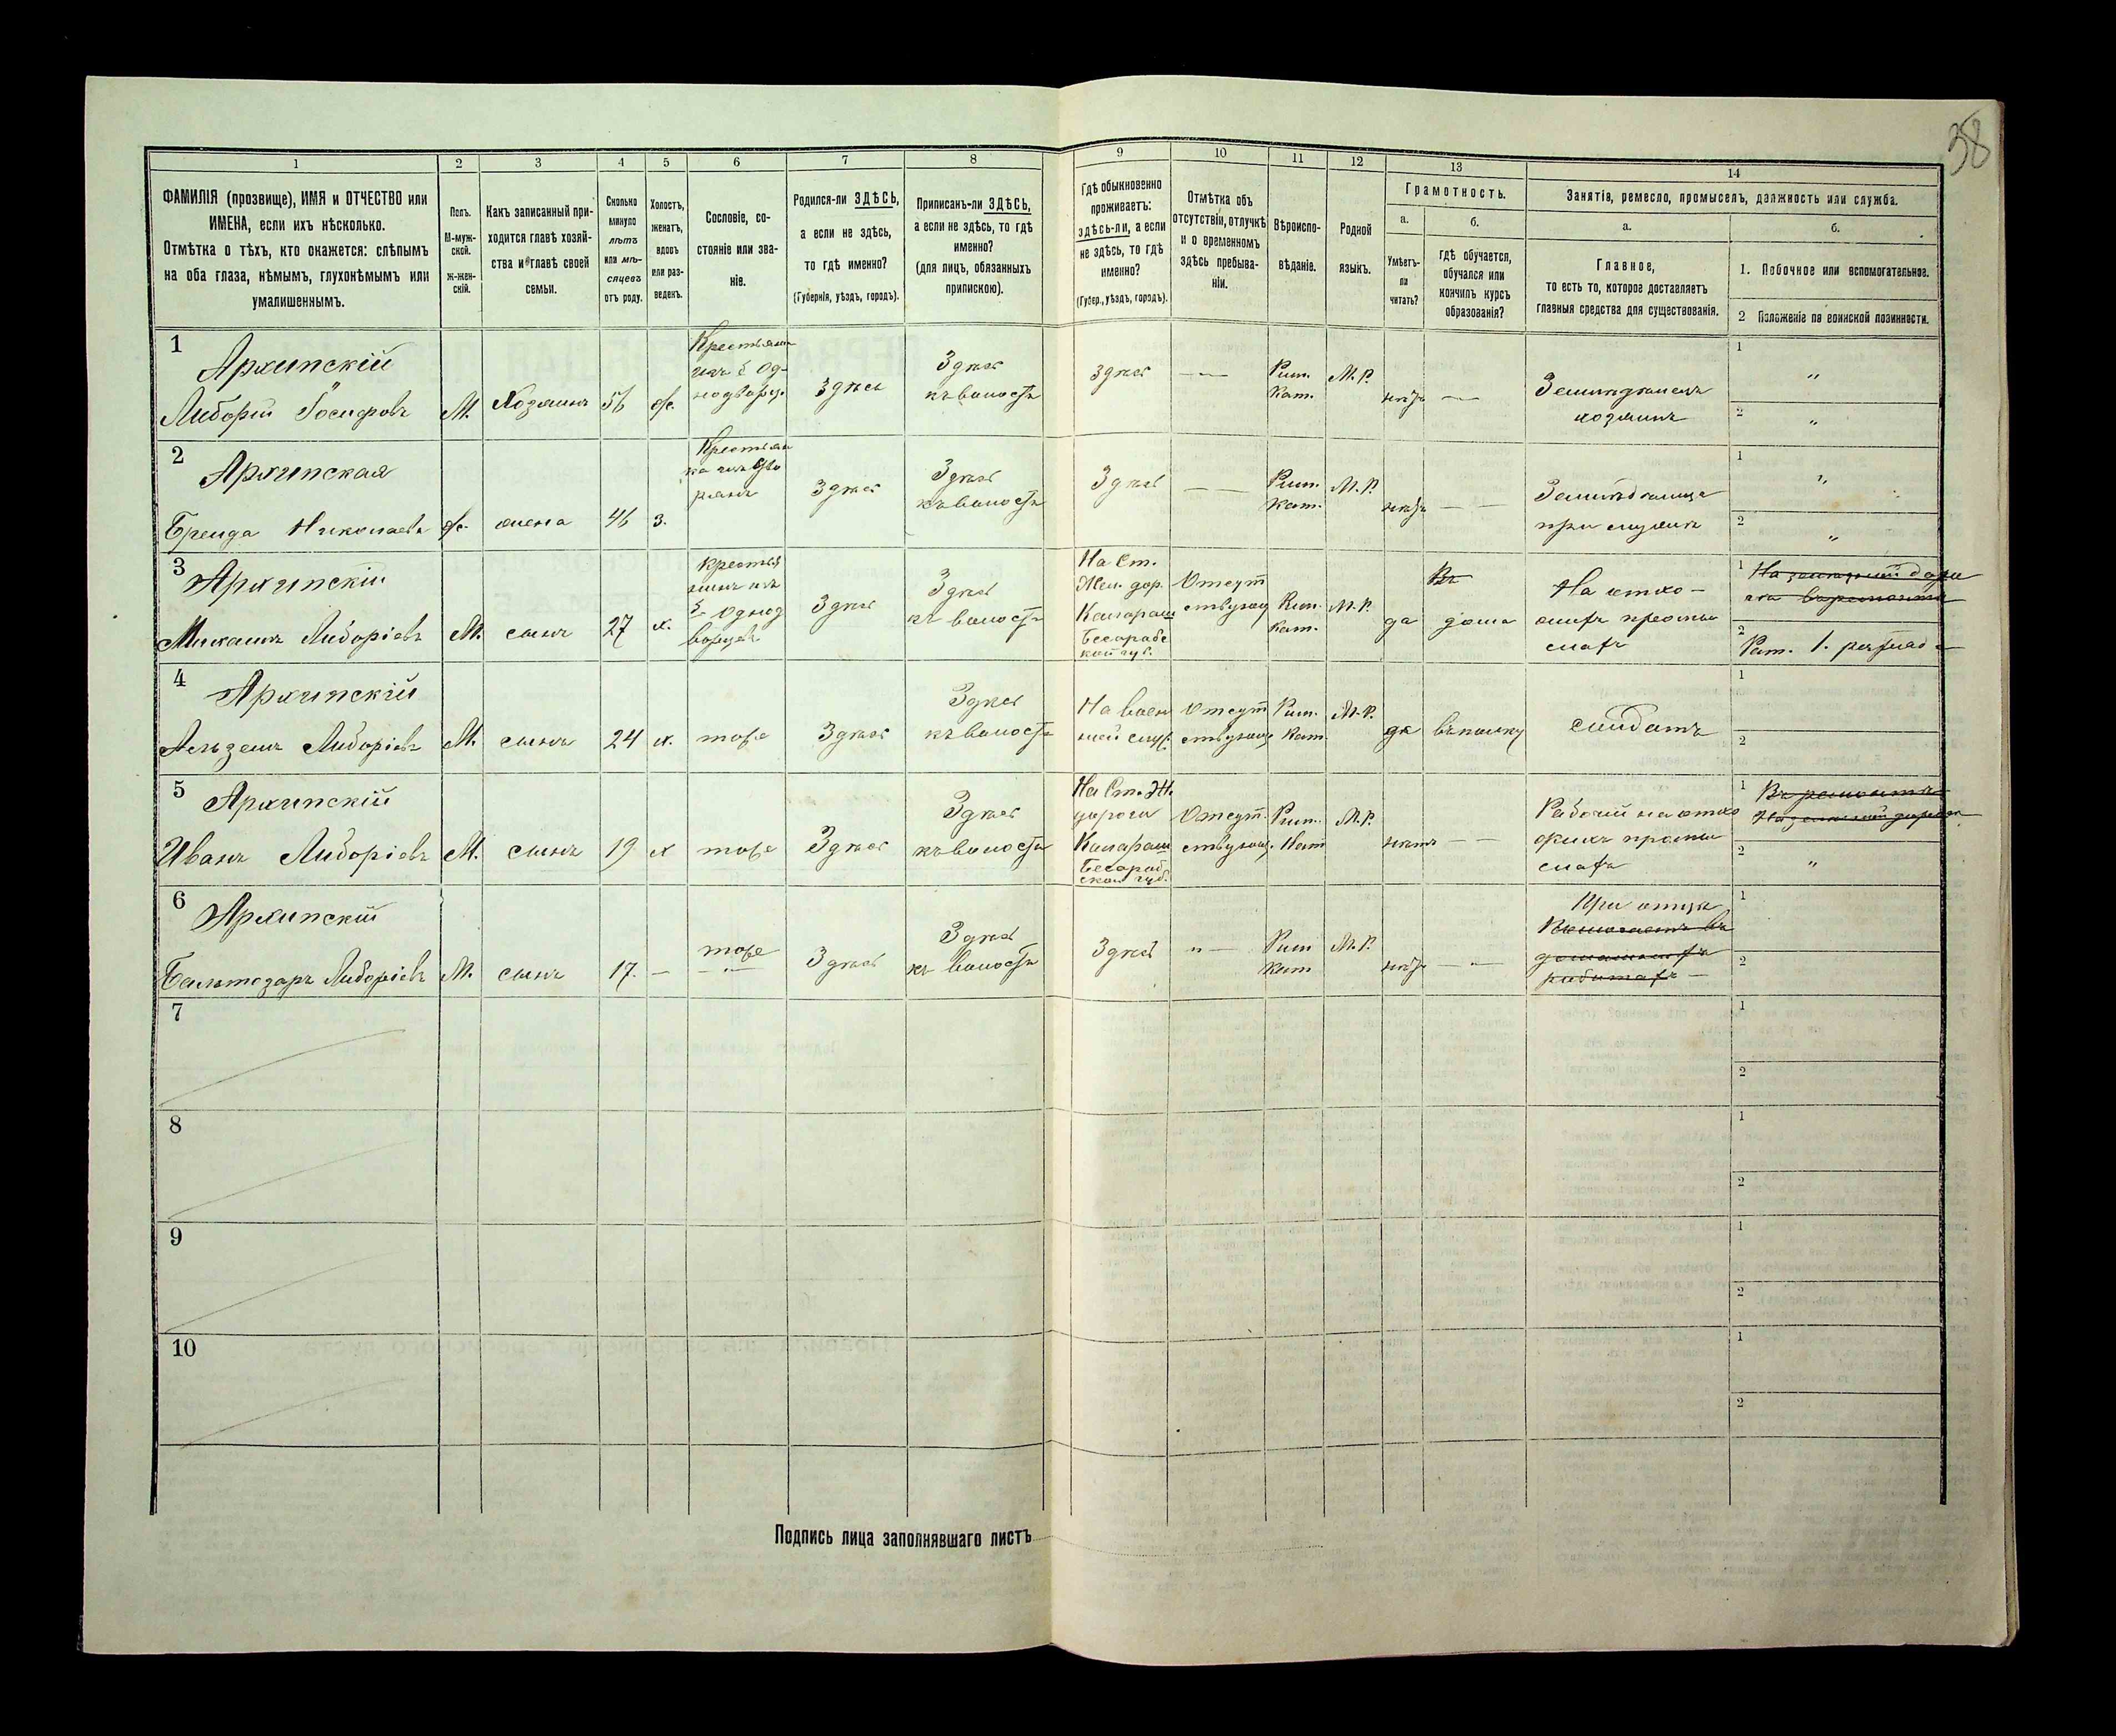 38
1 2 3 4 5 6 7 8 9 10 11 12 13 14
ФАМИЛІЯ (прозвище), ИМЯ и ОТЧЕСТВО или
ИМЕНА, если ихъ нѣсколько.
Отмѣтка о тѣхъ, кто окажется: слѣпымъ
на оба глаза, нѣмымъ, глухонѣмымъ или
умалишеннымъ.
Полъ.
М-муж-
ской.
ж-жен-
скій.
Какъ записанный при-
ходится главѣ хозяй-
ства и главѣ своей
семьи.
Сколько
минуло
лѣтъ
или мѣ-
сяцевъ
отъ роду.
Холостъ,
женатъ,
вдовъ
или раз-
веденъ.
Сословіе, со-
стояніе или зва-
ніе.
Родился-ли ЗДѢСЬ,
а если не здѣсь,
то гдѣ именно?
(Губернія, уѣздъ, городъ).
Приписанъ-ли ЗДѢСЬ,
а если не здѣсь, то гдѣ
именно?
(для лицъ, обязанныхъ
припискою).
Гдѣ обыкновенно
проживаетъ:
здѣсь-ли, а если
не здѣсь, то гдѣ
именно?
(Губер., уѣздъ, городъ).
Отмѣтка объ
отсутствіи, отлучкѣ
и о временномъ
здѣсь пребыва-
ніи.
Вѣроиспо-
вѣданіе.
Родной
языкъ.
Грамотность.
а.
Умѣетъ-
ли
читать?
б.
гдѣ обучается,
обучался или
кончилъ курсъ
образованія?
Занятія, ремесло, промыселъ, должность или служба.
а.
Главное,
то есть то, которое доставляетъ
главныя средства для существованія.
б.
1. Побочное или вспомогательное.
2 Положеніе по воинской повинности.
1
Архипскій
Либорій Іосифовъ
М.
Хозяинъ
56
ж.
Крестьян
изъ б. Од-
нодворц.
Здѣсь
Здѣсь
къ волости
здѣсь
Рим.
Кат.
М. Р.
нѣтъ
Земледѣлецъ
хозяинъ
1 "
2 "
2
Архипская
Бренда Николаевъ
ж.
жена
46
з.
Здѣсь
Здѣсь
къ волости
Здѣсь
Рим.
Кат.
М. Р.
нѣтъ
Земледѣлица
при мужѣ
1 "
2 "
3
Архипскій
Михаилъ Либоріевъ
М.
сынъ
27
х.
Крестья
нинъ изъ
б. Однод
ворцевъ
Здѣсь
Здѣсь
къ волости
На Ст.
Жел. дор.
Калараш
Бесараб
кой губ.
Отсут
ствующ
Рим.
Кат.
М. Р.
да
Въ
дома
На отхо-
жихъ промы
слахъ
1
2
Рат. 1. разряда
4
Архипскій
Либоріевъ
М.
сынъ
24
х.
тоже
Здѣсь
Здѣсь
къ волости
На воен
ной служ.
Отсут
ствующ
Рим.
Кат.
М. Р.
да
въ полку
солдатъ
1
2
5
Архипскій
Иванъ Либоріевъ
М.
сынъ
19
х
тоже
Здѣсь
Здѣсь
къ волости
На Ст. Ж.
дороги
Калараш
Бесараб
ской губ.
Отсут.
ствующ.
Рим.
Кат
М. Р.
нѣтъ
Рабочій на отхо
жихъ промы
слахъ
1
2 "
6
Архипскій
Бальтозаръ Либоріевъ
М.
сынъ
17.
тоже
Здѣсь
Здѣсь
къ волости
Здѣсь
"
Рим
Кат
М. Р.
нѣтъ
При отцѣ
Помогаетъ въ
домашнихъ
работахъ
1
2
7
1
2
8
1
2
9
1
2
10
1
2
Подпись лица заполнявшаго листъ